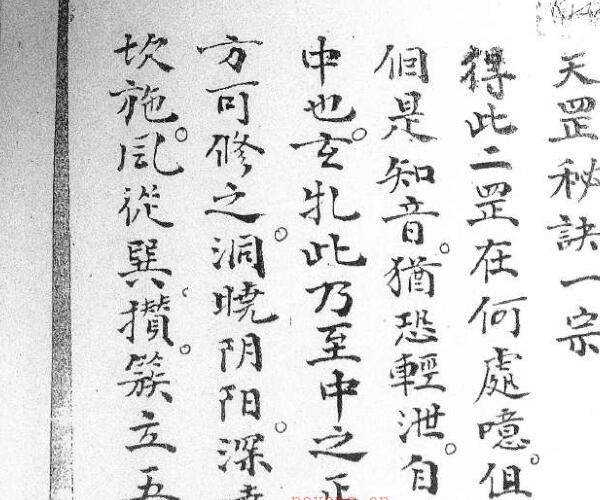 天罡秘訣一宗
得此二罡在何處噫。但
個是知音。猶恐輕泄。自
中也。玄牝此乃至中之
方可修之。洞曉阴阳。深
坎施。風從巽、攢。簇立五